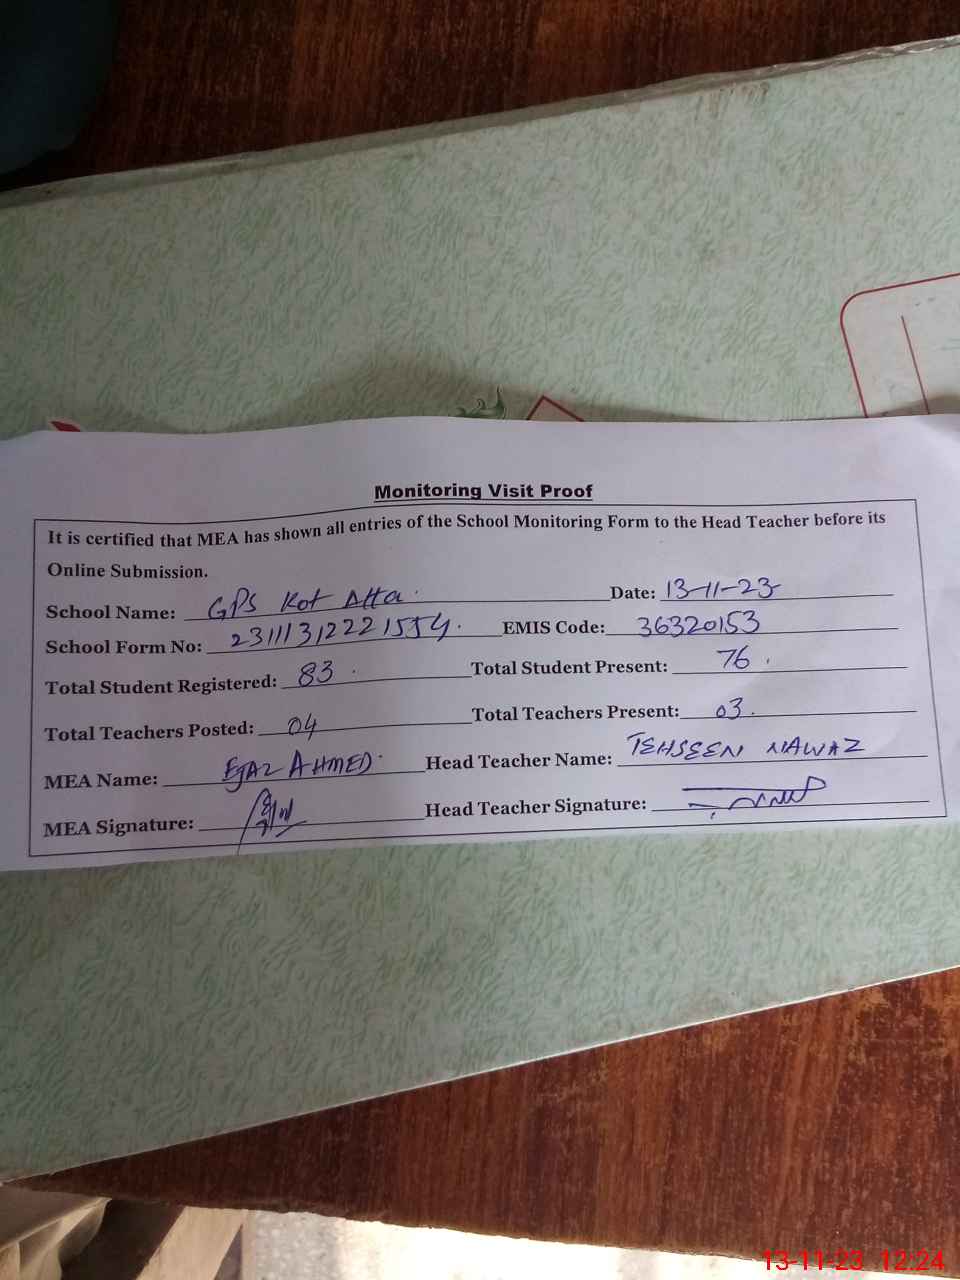 Monitoring Visit Proof
It is certified that MEA has shown all entries of the School Monitoring Form to the Head Teacher before its
Online Submission.
School Name: GPS Kot Atta. Date: 13-11-23
School Form No: 23111312221554. EMIS Code: 36320153
Total Student Registered: 83. Total Student Present: 76.
Total Teachers Posted: 04 Total Teachers Present: 03.
MEA Name: EJAZ AHMED. Head Teacher Name: TEHSEEN NAWAZ
MEA Signature: Head Teacher Signature:
13-11-23 12:24